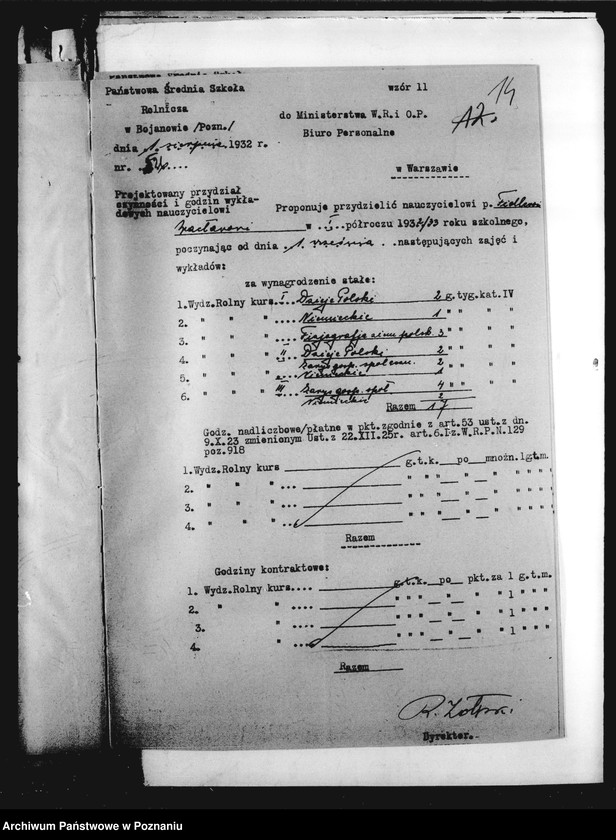 Państwowa Średnia Szkoła
Rolnicza
w Bojanowie /Pozn./
dnia 1. sierpnia 1932 r.
nr.
wzór 11
14
do Ministerstwa W.R.i O.P.
Biuro Personalne
w Warszawie
Projektowany przydział
czynności i godzin wykła-
dowych nauczycielowi
Proponuje przydzielić nauczycielowi p.
w I półroczu 1932/33 roku szkolnego,
poczynając od dnia 1. września . .następujących zajęć i
wykładów:
za wynagrodzenie stałe:
1.Wydz.Rolny kurs I Dzieje Polski 2 g.tyg.kat.IV
2. " " " .... Niemieckie 1 " " " "
3. " " " .... Fizjografja ziem polsk. 3 " " " "
4. " " " II Dzieje Polski 2 " " " "
Zarys gosp. społeczn. 2
5. " " " .... Niemieckie 1 " " " "
6. " " " III Zarys gosp. społ. 4 " " " "
Niemieckie 2
Razem 17
Godz. nadliczbowe/płatne w pkt.zgodnie z art.53 ust.z dn.
9.X.23 zmienionym Ust.z 22.XII.25r. art.6.Dz.W.R.P.N.129
poz.918
1.Wydz.Rolny kurs g.t.k. po mnożn.1gt.m.
2. " " " ... " " " " " " " "
3. " " " ... " " " " " " " "
4. " " " ... " " " " " " " "
Razem
Godziny kontraktowe:
1. Wydz.Rolny kurs.... g.t.k. po pkt.za 1 g.t.m.
2. " " .... " " " " " 1 " " "
3. " .... " " " " " 1 " " "
4. " .... " " " " " 1 " " "
Razem
Dyrektor.
Archiwum Państwowe w Poznaniu